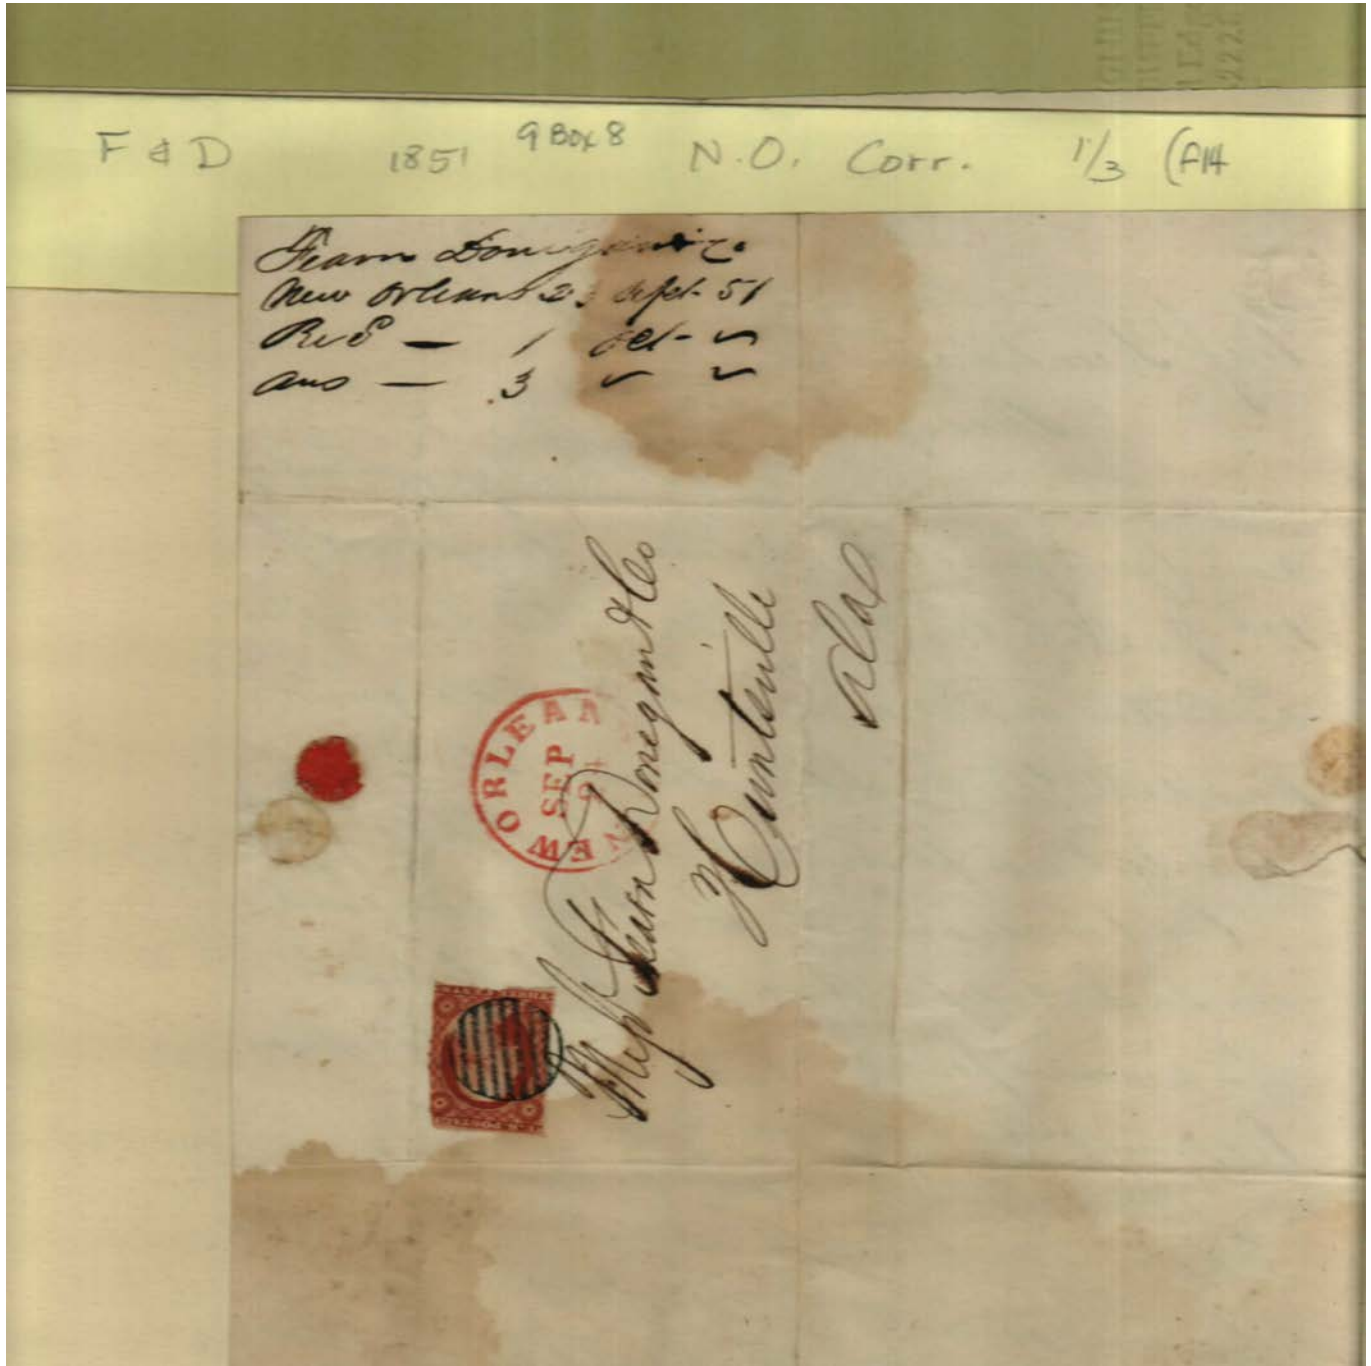 F & D 1851 9 Box 8 N.O. Corr. 1/3 (F14
Fearn Donegan & Co.
New Orleans 23 Sept 51
Recd — 1 Oct - "
ans — 3 " "
NEW ORLEAN
SEP
Messrs Fearn Donegan & Co
Huntsville
Ala